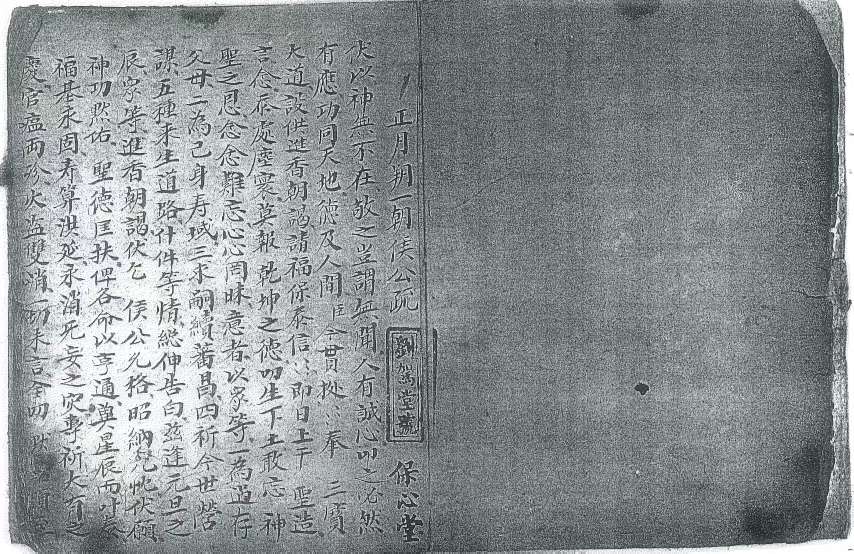 正月朔一朝侯公疏 劉篤堂號 保心堂
伏以神無不在敬之豈謂無聞人有誠心叩之必然
有應功同天地德及人間臣今冒挻⺀奉 三寶
大道設供進香朝謁請福保泰信⺀即日上干 聖造
言念痿處塵寰莫報乾坤之德叨生下土敢忘 神
聖之恩念念難忘心心罔昧意者以家等一為追存
父母二為己身寿域三求嗣續蕃昌四祈今世營
謀五種来生道路什件等情緫伸告白茲逢元旦之
辰家等進香朝謁伏乞 侯公允格昭納凢忱伏願
神功默佑 聖德匡扶俾各命以亨通與星辰而叶泰
福基永固寿算洪延永消死妄之灾專祈大有之
慶官瘟兩殄火盗雙消一切未言全叨